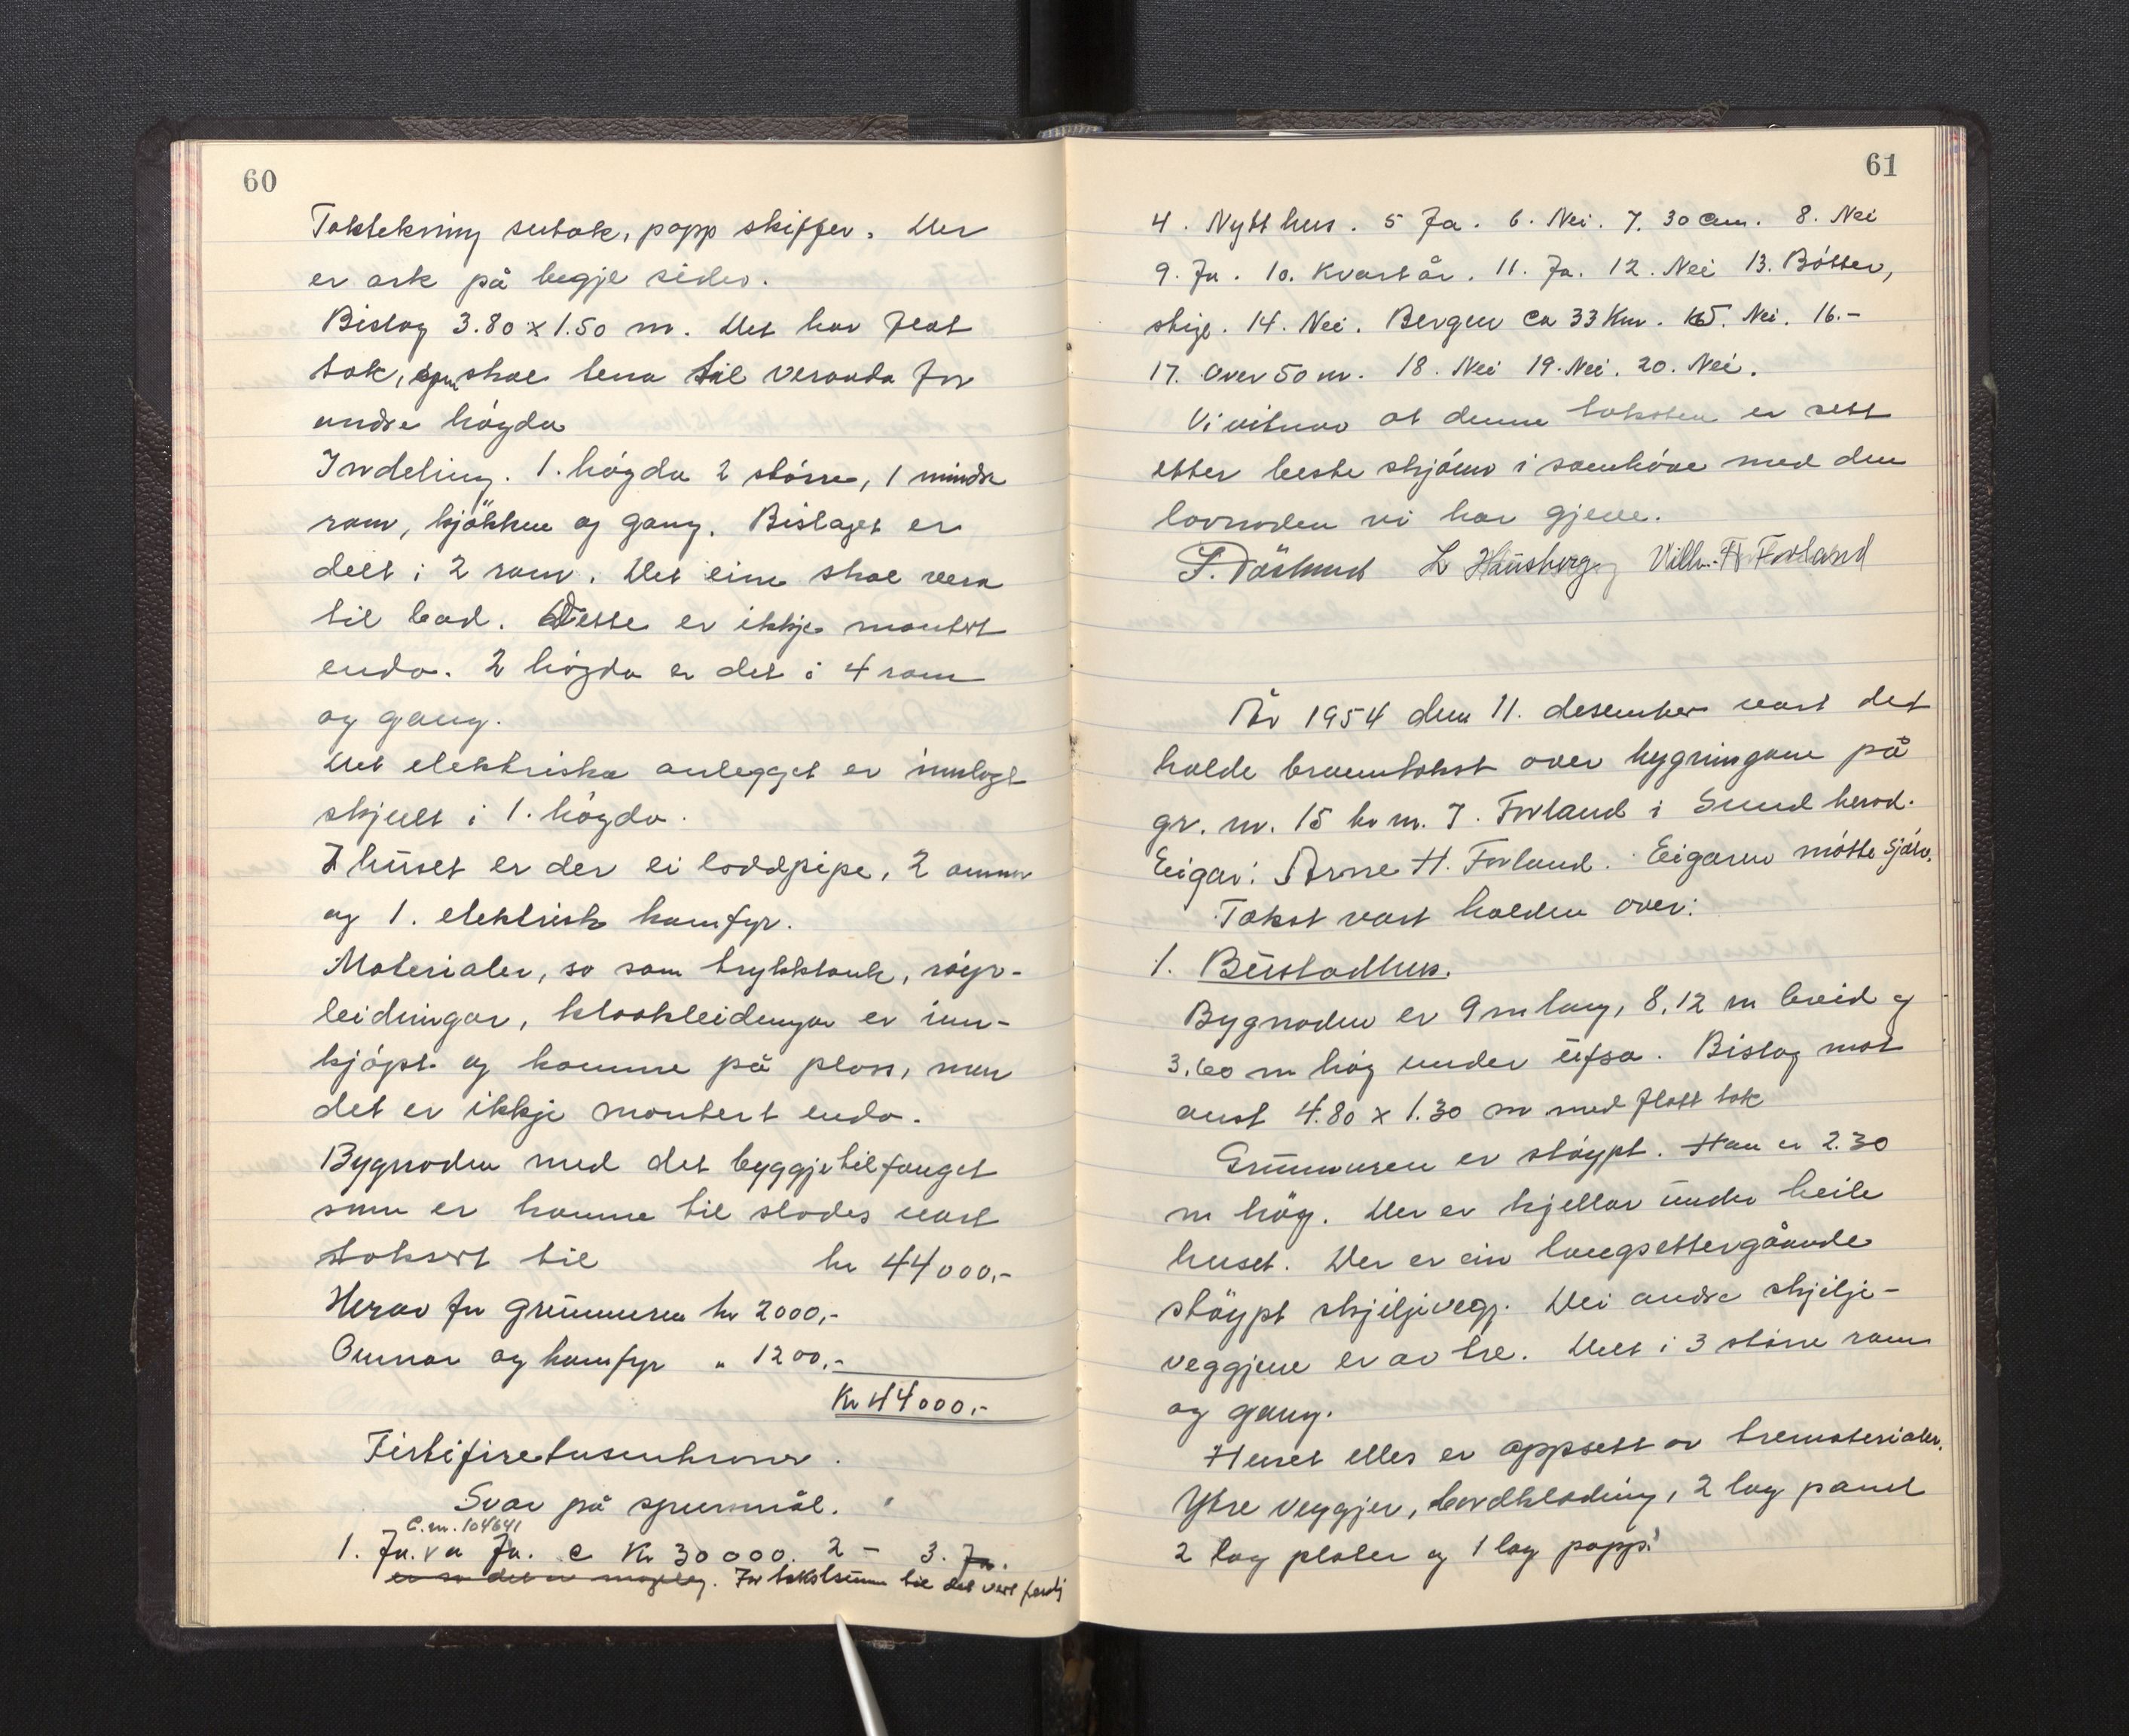 60
Taktekning sutak, papp skiffer. Der
er ark på begje sider.
Bislag 3.80 x 1.50 m. Det har flat
tak, som skal tena til veranda for
andre högda
Inndeling. 1. högda 2 større, 1 mindre
rom, kjökken og gang. Bislaget er
delt i 2 rom. Det eine skal vera
til bad. Desse er ikkje montert
enda. 2 högda er delt i 4 rom
og gang.
Det elektriske anlegget er innlagt
skjult i 1. högda.
I huset er der ei loddpipe, 2 omnar
og 1. elektrisk komfyr.
Materialer, so som trykktank, røyr-
leidningar, kloakleidingar er inn-
kjöpt og komme på plass, men
det er ikkje montert enda.
Bygnaden med det byggjetilfanget
som er komme til stades vart
taksert til kr 44000,-
Herav for grunnmuren kr 2000,-
Omnar og komfyr " 1200,-
Kr 44000,-
Firtifiretusenkroner.
Svar på spursmål.
C.m. 104641
1. Ja. v a Ja. c Kr 30000. 2 — 3. Ja.
er so det er mogleg. For takstsum til det vert ferdig
61
4. Nytt hus. 5 Ja. 6. Nei. 7. 30 cm. 8. Nei
9. Ja. 10. Kvart år. 11. Ja. 12. Nei 13. Bötter,
stige. 14. Nei. Bergen ca 33 Km. 15. Nei. 16.-
17. Over 50 m. 18. Nei 19. Nei. 20. Nei.
Vi vitnar at denne taksten er sett
etter beste skjönn i samhöve med den
lovnaden vi har gjeve.
L Hausberg Vilh. H Forland
År 1954 den 11. desember vart det
halde branntakst over bygningane på
gr. nr. 15 br nr. 7. Forland i Sund herad.
Eigar: Arne H. Forland. Eigaren mötte sjölv.
Takst vart halden over:
1. Bustadhus.
Bygnaden er 9 m lang, 8,12 m breid og
3,60 m høg under ufsa. Bislag mot
aust 4.80 x 1.30 m med flatt tak
Grunnmuren er støypt. Han er 2.30
m høg. Der er kjellar under heile
huset. Der er ein langsettergåande
støypt skjeljevegg. Dei andre skjelje-
veggjene er av tre. Delt i 3 större rom
og gang.
Huset elles er oppsett av trematerialer.
Ytre veggjer, bordkledning, 2 lag panel
2 lag plater og 1 lag papp.